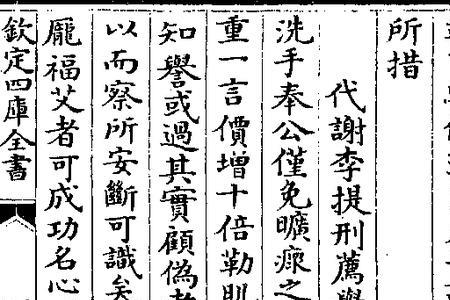 所措
代謝李提刑薦
洗手奉公僅免曠瘝之
重一言價增十倍勒
知譽或過其實顧偽
以而察所安斷可識矣
龎福艾者可成功名心
欽定四庫全書